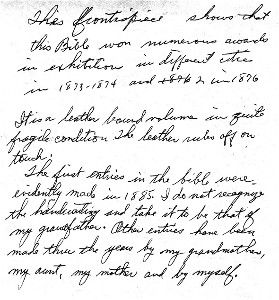 This frontispiece shows that
this Bible won numerous awards
in exhibition in different cities
in 1873-1874 and 2 in 1876
It is a leather bound volume in quite
fragile condition. The leather rubs off on
touch.
The first entries in the bible were
evidently made in 1885. I do not recognize
the handwriting and take it to be that of
my grandfather. Other entries have been
made thru the years by my grandmother,
my aunt, my mother and by myself.